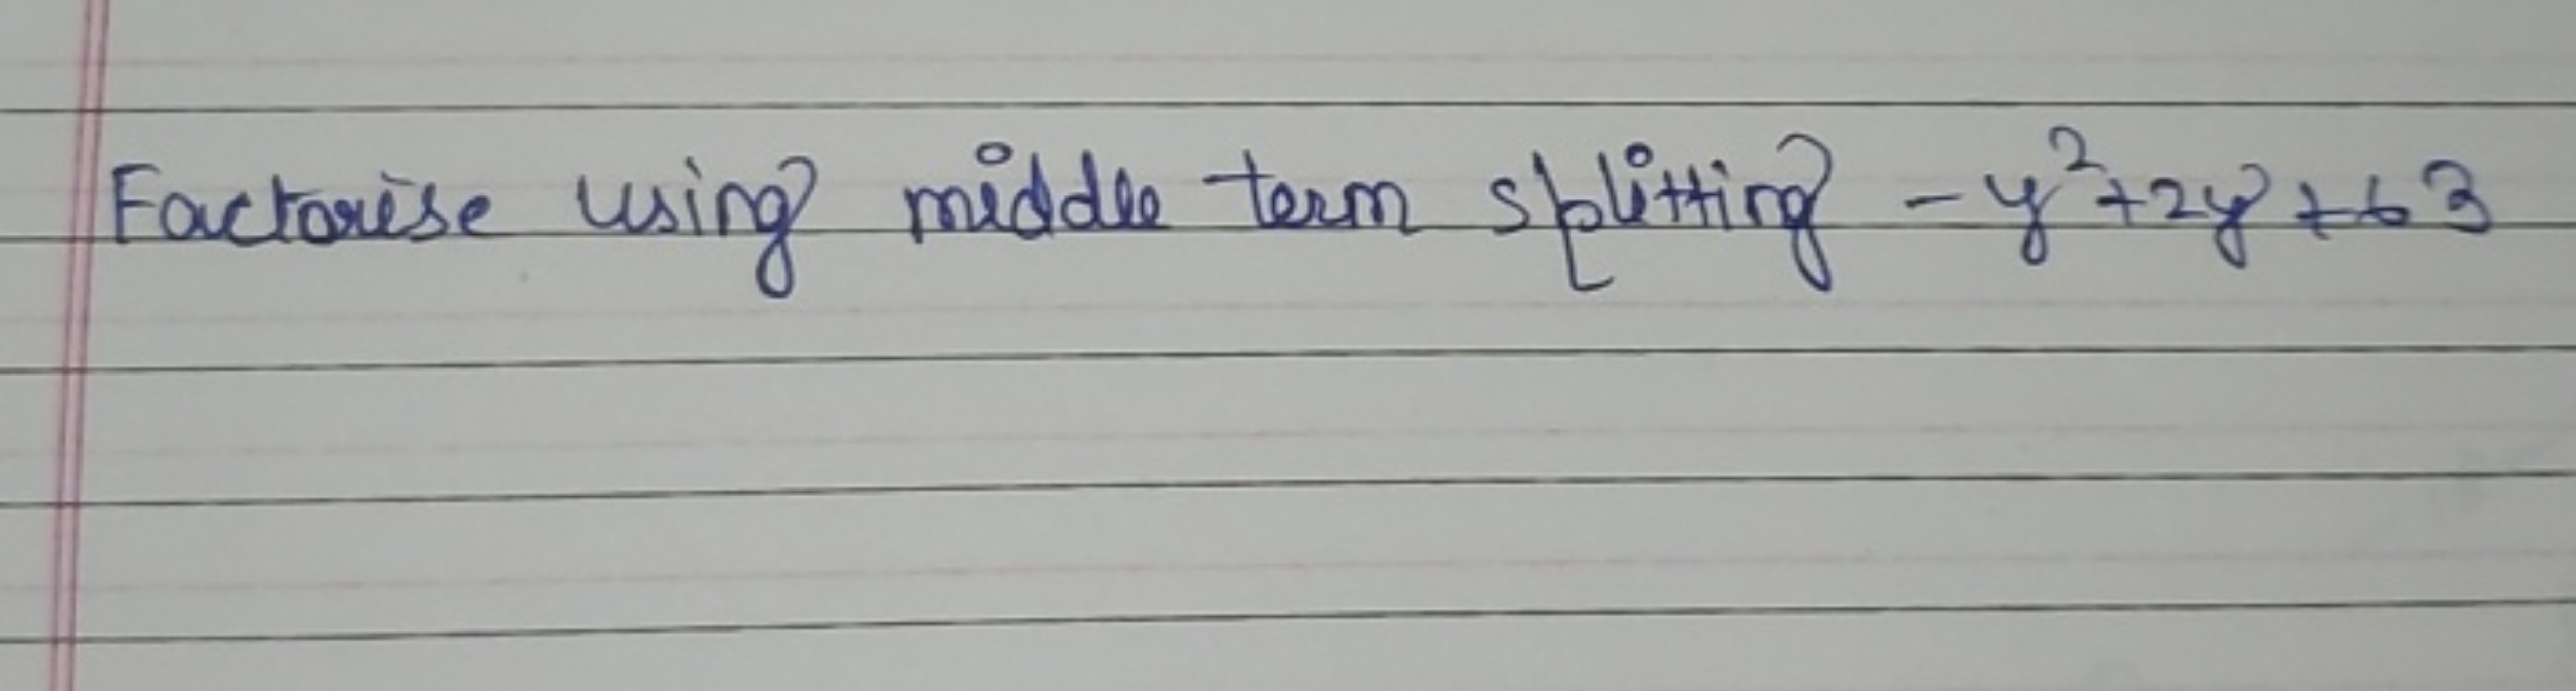 Factorise using middle term splitting - y²+2y+63